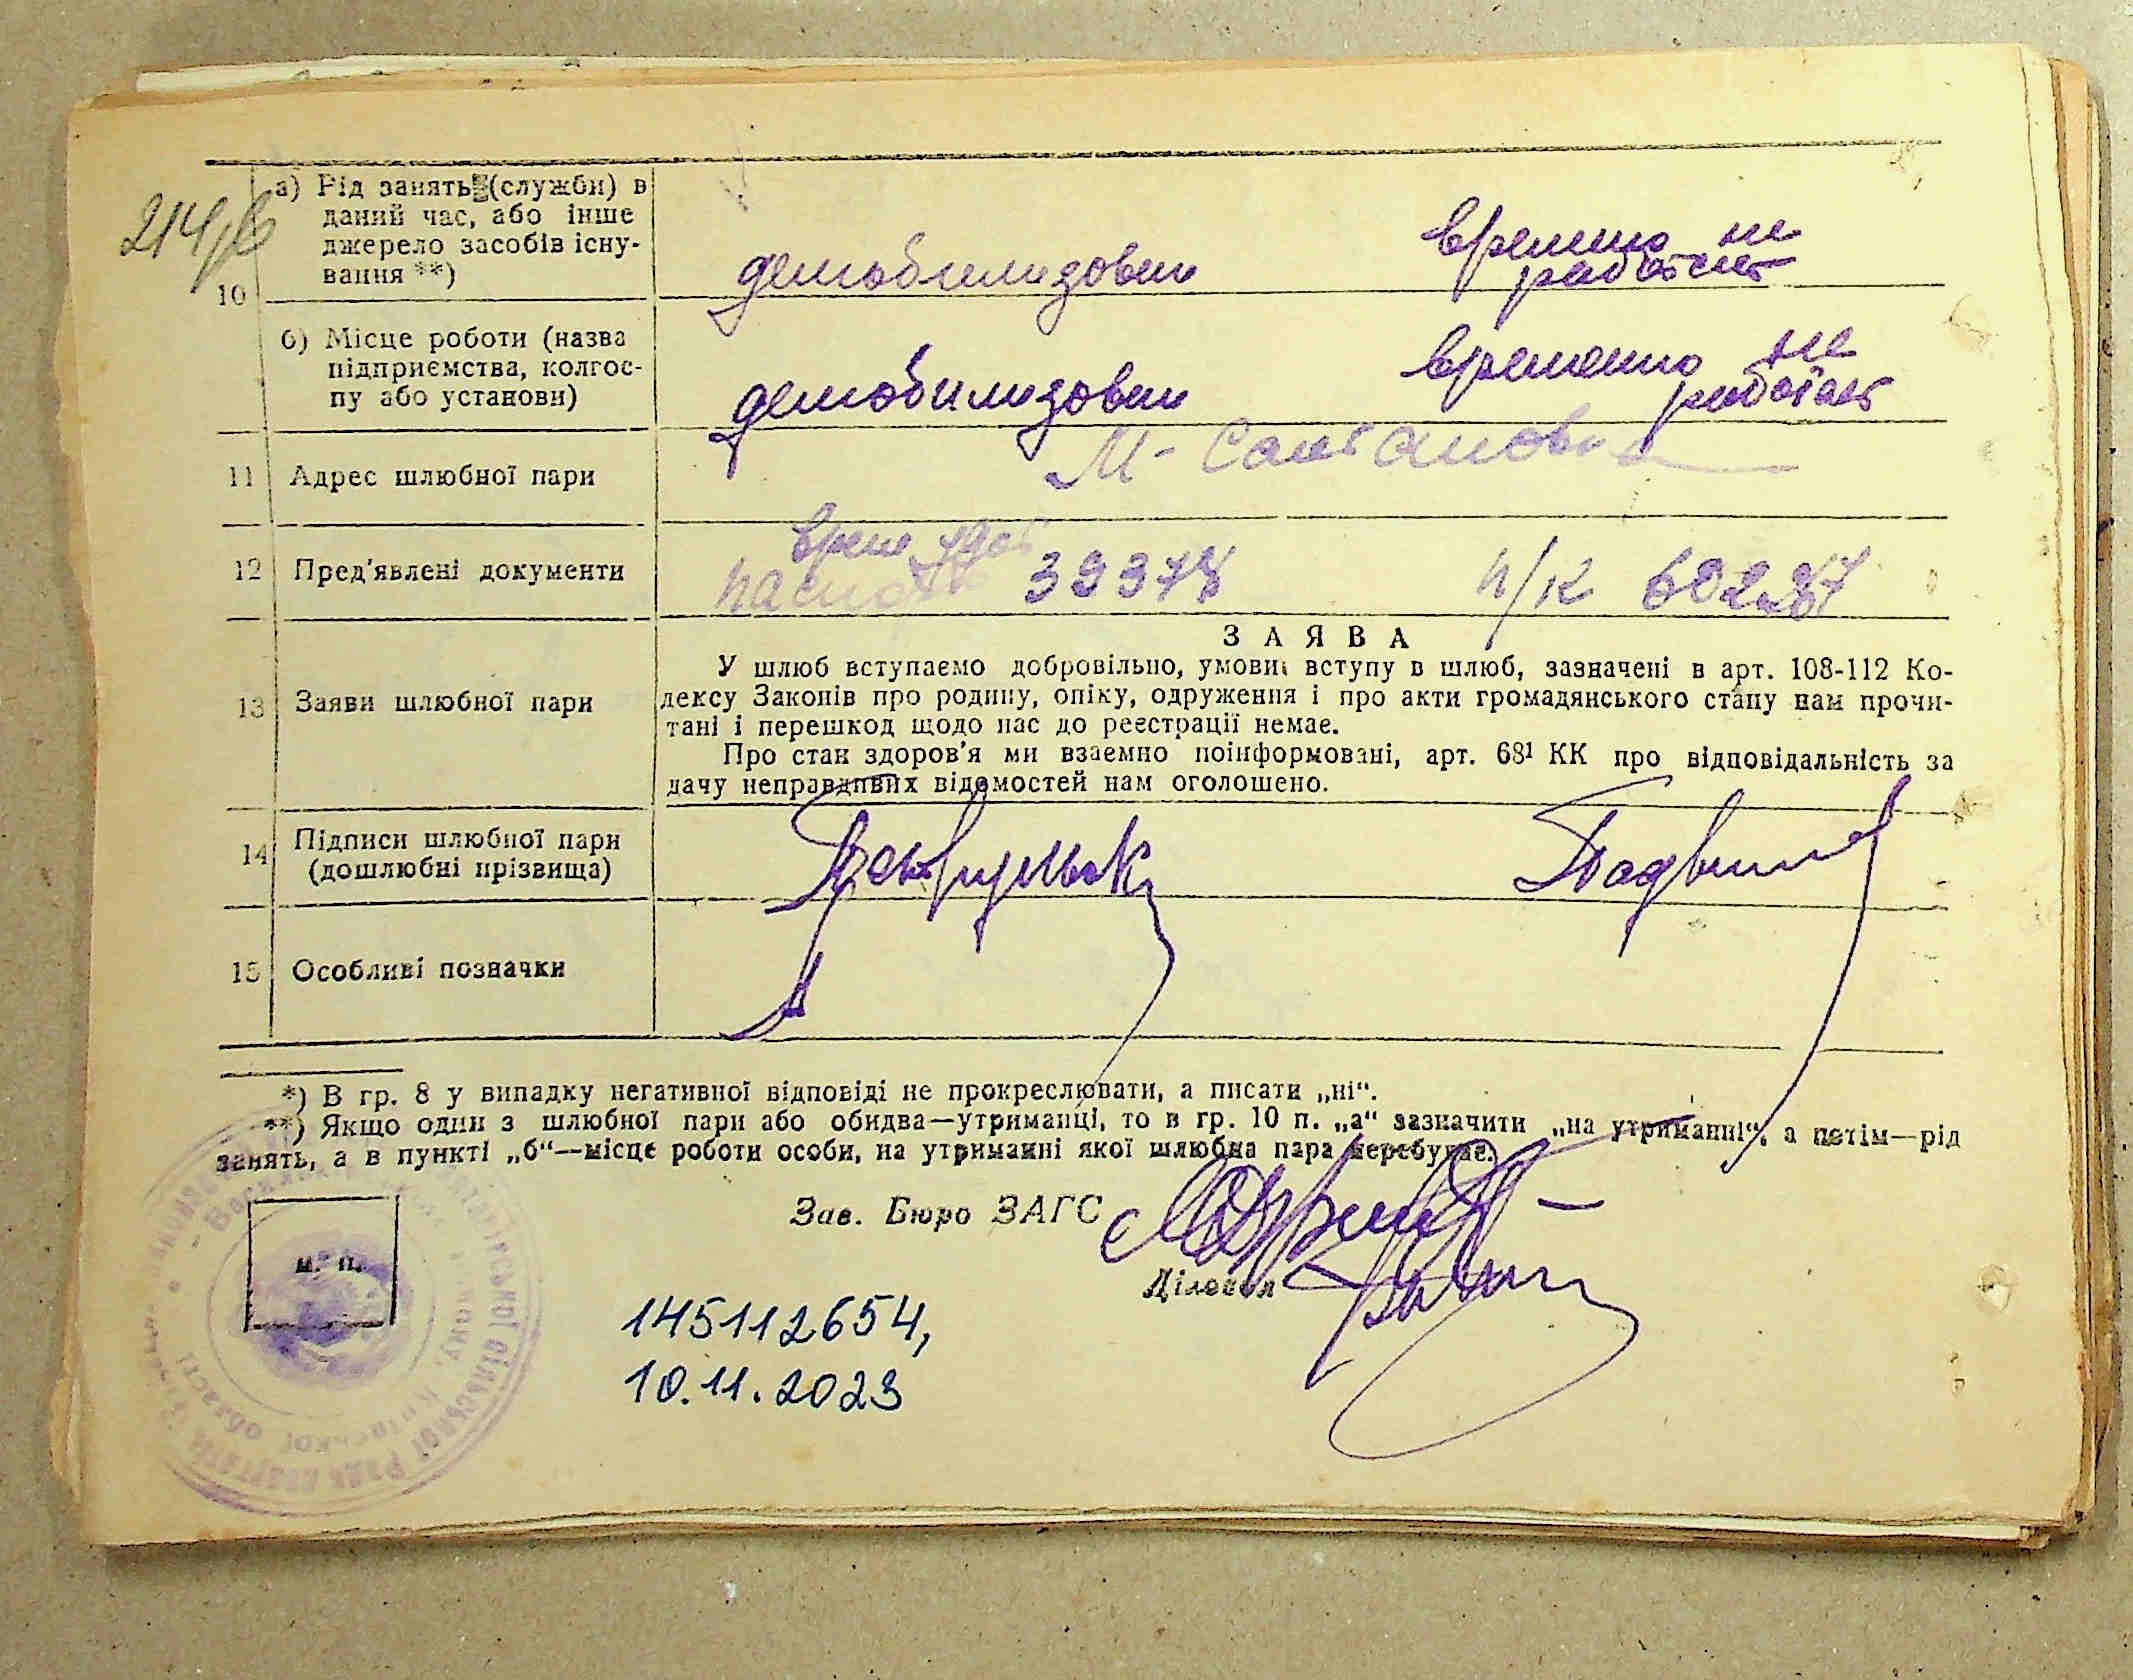 214/в
10
а) Рід занять (служби) в
даний час, або інше
джерело засобів існу-
вання **)
демобилизован
времено не
работает
б) Місце роботи (назва
підприємства, колгос-
пу або установи)
демобилизован
временно не
работает
11 Адрес шлюбної пари
М-
12 Пред'явлені документи
врем удос
паспорт 39378
п/к
13 Заяви шлюбної пари
ЗАЯВА
У шлюб вступаємо добровільно, умови вступу в шлюб, зазначені в арт. 108-112 Ко-
дексу Законів про родину, опіку, одруження і про акти громадянського стану нам прочи-
тані і перешкод щодо нас до реєстрації немає.
Про стан здоров'я ми взаємно поінформовані, арт. 68¹ КК про відповідальність за
дачу неправдивих відомостей нам оголошено.
14 Підписи шлюбної пари
(дошлюбні прізвища)
15 Особливі позначки
*) В гр. 8 у випадку негативної відповіді не прокреслювати, а писати „ні“.
**) Якщо один з шлюбної пари або обидва—утриманці, то в гр. 10 п. „а“ зазначити „на утриманні“, а потім—рід
занять, а в пункті „б“—місце роботи особи, на утриманні якої шлюбна пара перебуває.
Зав. Бюро ЗАГС
м. п.
Діловод
145112654,
10.11.2023
сільської Ради
області